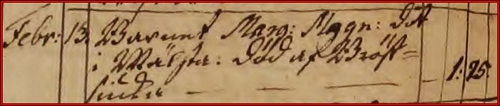 Febr: 13. Barnet Marg: Magn: dot
i Wälsta: död af Bröst-
siuka — — — — 1:25